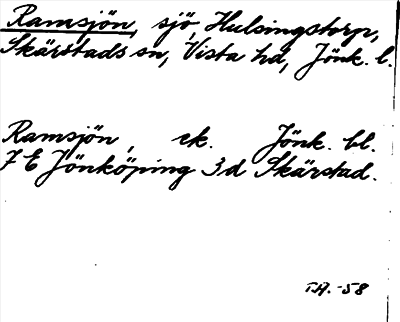 Ramsjön, sjö, Hulsingstorp,
Skärstads sn, Vista hd, Jönk. l.
Ramsjön, ek. Jönk. bl.
7 E Jönköping 3d Skärstad.
T.A. -58